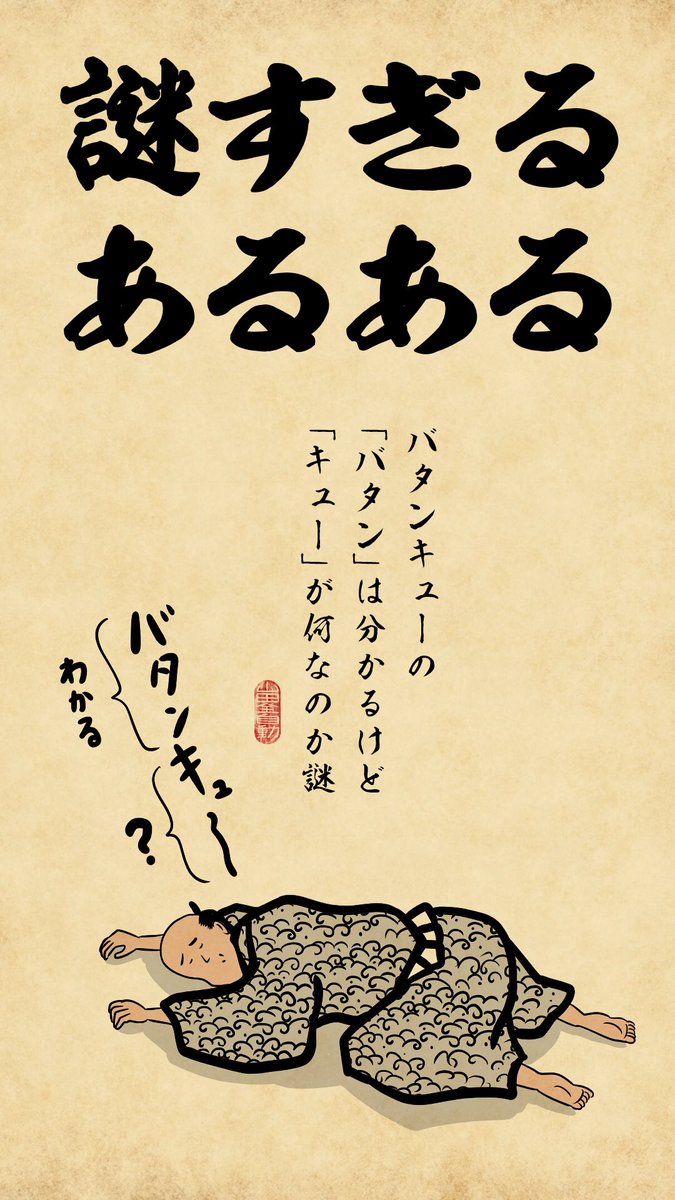 謎すぎる
あるある
バタンキューの
「バタン」は分かるけど
「キュー」が何なのか謎
バタンキュ〜
わかる
?